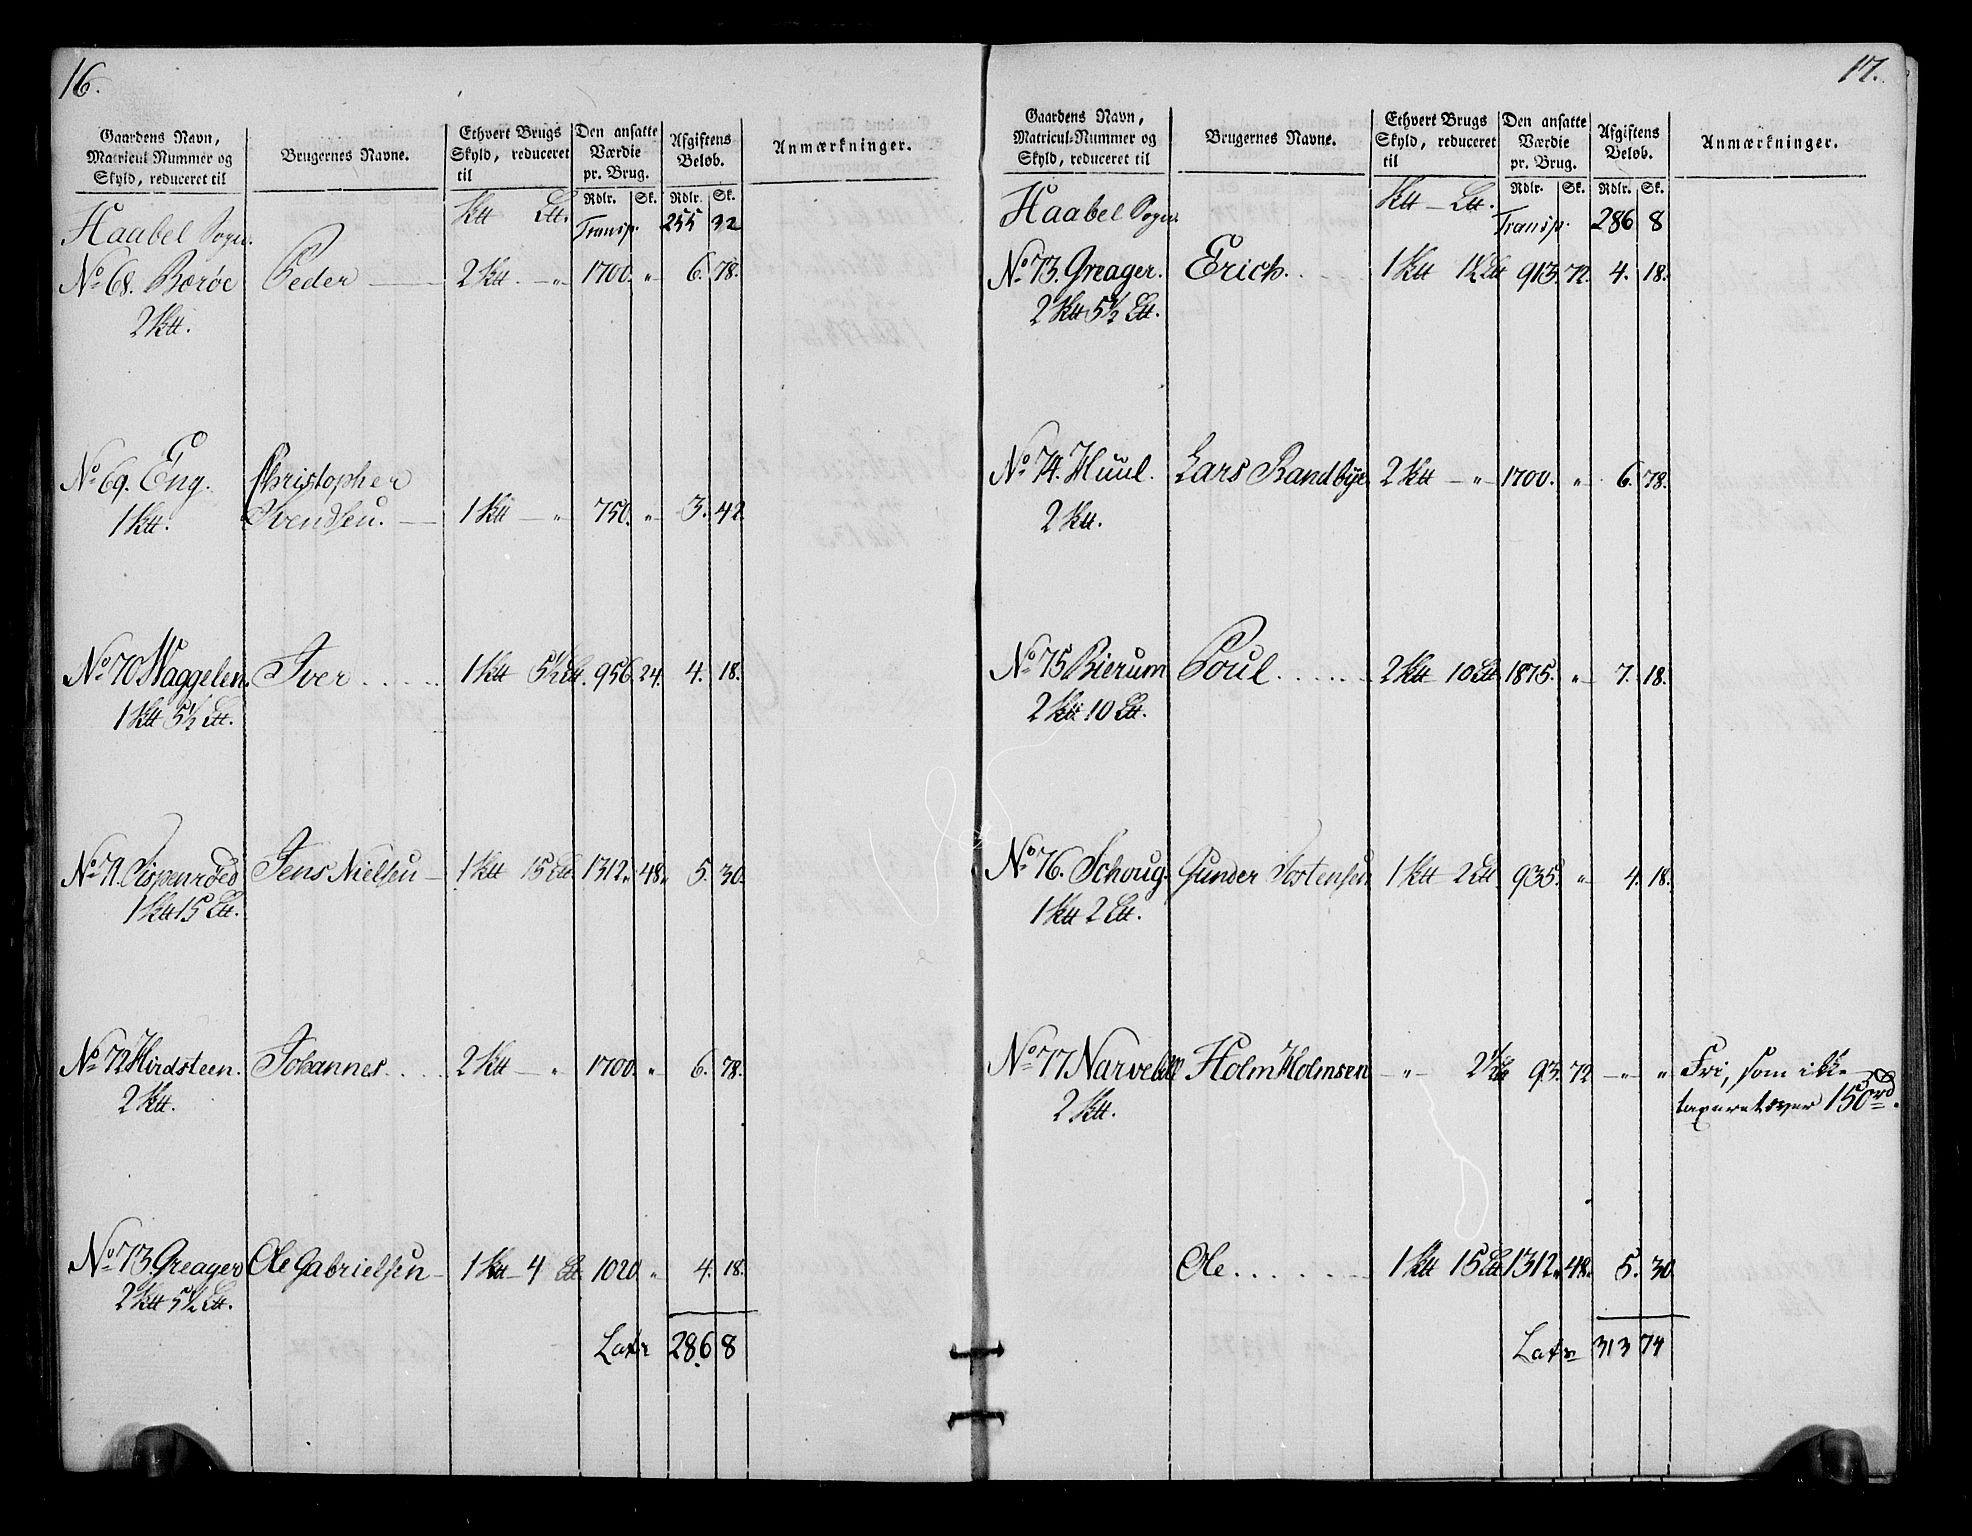 16.
Gaardens Navn, Matricul Nummer og Skyld, reduceret til | Brugernes Navne. | Ethvert Brugs Skyld, reduceret til | Den ansatte Værdie pr. Brug. | Afgiftens Beløb. | Anmærkninger.
Rdlr. Sk. Rdlr. Sk.
Haabel Sogn. | Ktt Ltt. | Transp. | 255 32
No 68. Borøe | Peder | 2 Ktt. — „ | 1700. „ | 6. 78.
2 Ktt.
No 69. Eng. | Christopher
1 Ktt. | Svendsen. | 1 Ktt — „ | 750. „ | 3. 42.
No 70 Waggelen. | Iver | 1 Ktt 5½ Ltt. | 956. 24. | 4. 18.
1 Ktt 5½ Ltt.
No 71. Pispenrøed | Jens Nielsen | 1 Ktt 15 Ltt | 1312. 48. | 5. 30.
1 Ktt 15 Ltt.
No 72 Hirdsteen. | Johannes | 2 Ktt — „ | 1700. „ | 6. 78.
2 Ktt.
No 73. Greager | Ole Gabrielsen | 1 Ktt 4 Ltt. | 1020 „ | 4. 18.
2 Ktt 5½ Ltt.
Latr | 286 8
17.
Gaardens Navn, Matricul-Nummer og Skyld, reduceret til | Brugernes Navne. | Ethvert Brugs Skyld, reduceret til | Den ansatte Værdie pr. Brug. | Afgiftens Beløb. | Anmærkninger.
Rdlr. Sk. Rdlr. Sk.
Haabel Sogn. | Ktt — Ltt. | Transp. | 286 8
No 73. Greager. | Erich. | 1 Ktt 1½ Ltt | 913. 72. | 4. 18.
2 Ktt 5½ Ltt.
No 74. Huul. | Lars Randbye | 2 Ktt — „ | 1700. „ | 6. 78.
2 Ktt.
No 75 Bierum | Poul | 2 Ktt 10 Ltt | 1875. „ | 7. 18.
2 Ktt 10 Ltt.
No 76. Schoug. | Gunder Tostensen | 1 Ktt 2 Ltt. | 935. „ | 4. 18.
1 Ktt 2 Ltt.
No 77 Narvebill | Holm Holmsen | — „ 2½ Ltt | 93. 72 | — „ „ | Fri, som ikke
2 Ktt. | taxeret over 150 rd.
Ole | 1 Ktt 15 Ltt | 1312. 48. | 5. 30.
Latr | 313 74